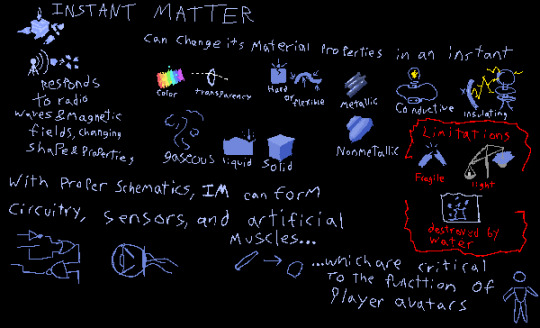 INSTANT MATTER
Can Change its Material Properties in an instant
responds
to radio
waves & magnetic
fields, changing
shape & Properties
color
transparency
Hard
or
flexible
Metallic
Conductive
insulating
gaseous
Liquid
Solid
Nonmetallic
Limitations
Fragile
light
destroyed by
water
With Proper Schematics, IM can form
Circuitry, sensors, and artificial
Muscles...
...which are critical
to the function of
Player avatars